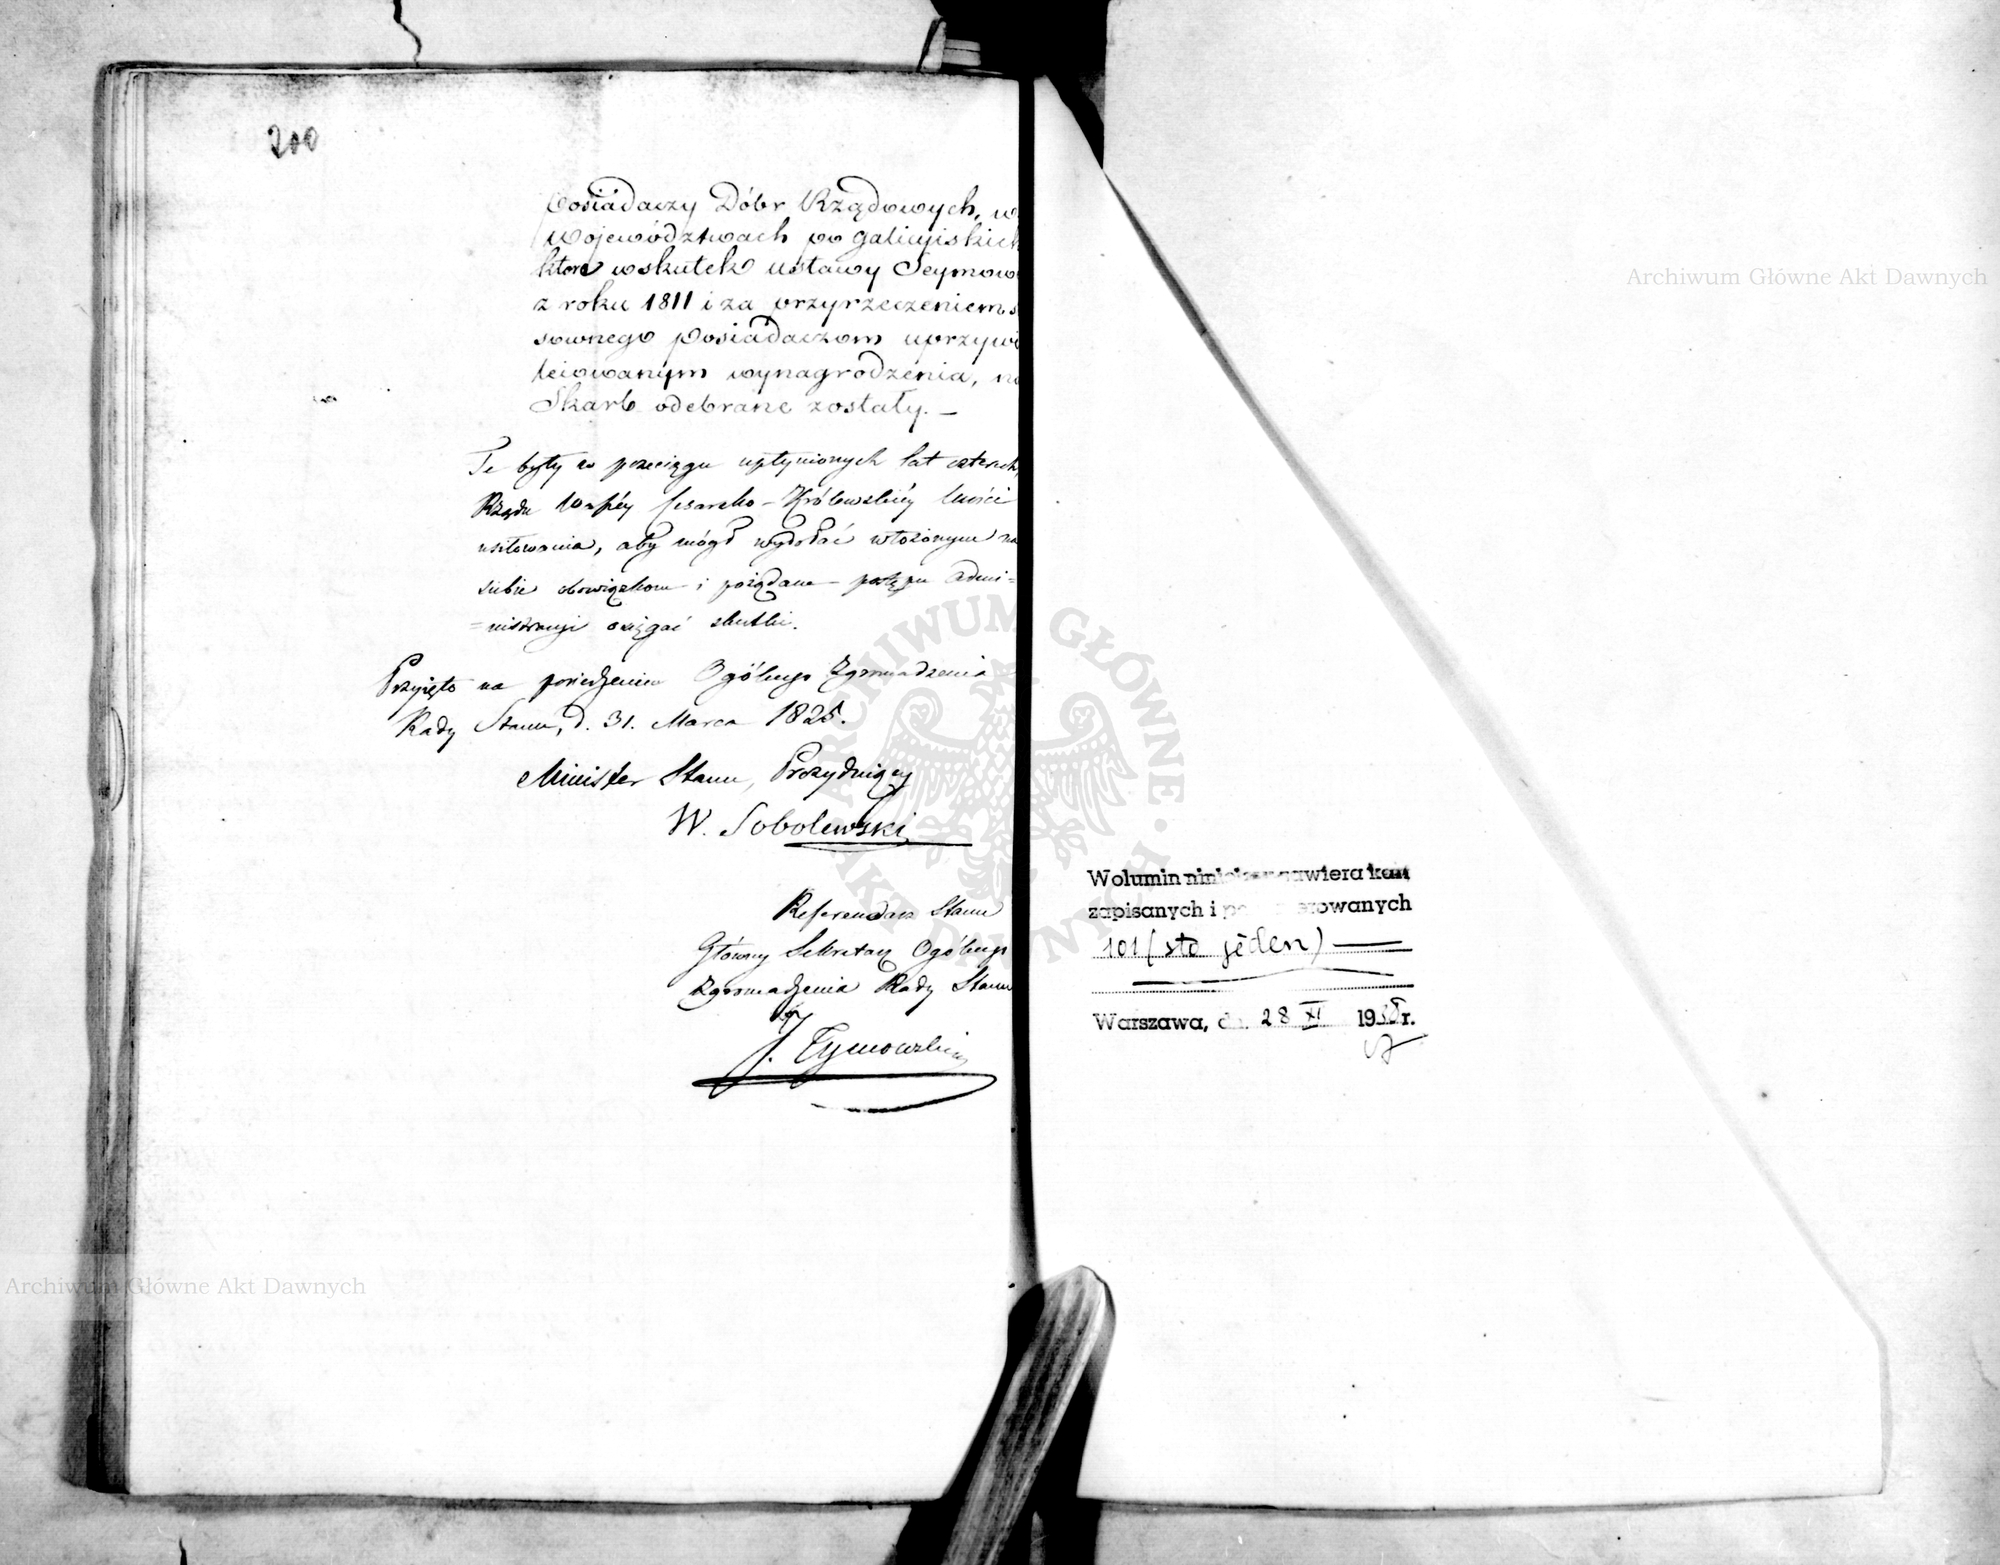 200
Posiadaczy Dóbr Rządowych, w
Województwach po galicyiskich
które wskutek ustawy Seymow
z roku 1811 i za przyrzeczeniem s
sownego Posiadaczom uprzywi
leiowanym wynagrodzenia, na
Skarb odebrane zostały. —
Te były w przeciągu upłynionych lat czterech,
Rządu Waszéy Cesarsko-Królewskiéy Mości
usiłowania, aby mógł wydołać włożonym na
siebie obowiązkom i pożądane postępu Admi=
=nistracyi osiągać skutki.
Przyięto na posiedzeniu Ogólnego Zgromadzenia
Rady Stanu, d. 31. Marca 1825.
Minister Stanu, Prezyduiący
W. Sobolewski
Referendarz Stanu
Główny Sekretarz Ogólnego
Zgromadzenia Rady Stanu
J. Tymowski
Wolumin niniejszy zawiera kart
zapisanych i ponumerowanych
101 (sto jeden)
Warszawa, dn. 28 XI 1958 r.
Archiwum Główne Akt Dawnych
Archiwum Główne Akt Dawnych
ARCHIWUM GŁÓWNE AKT DAWNYCH